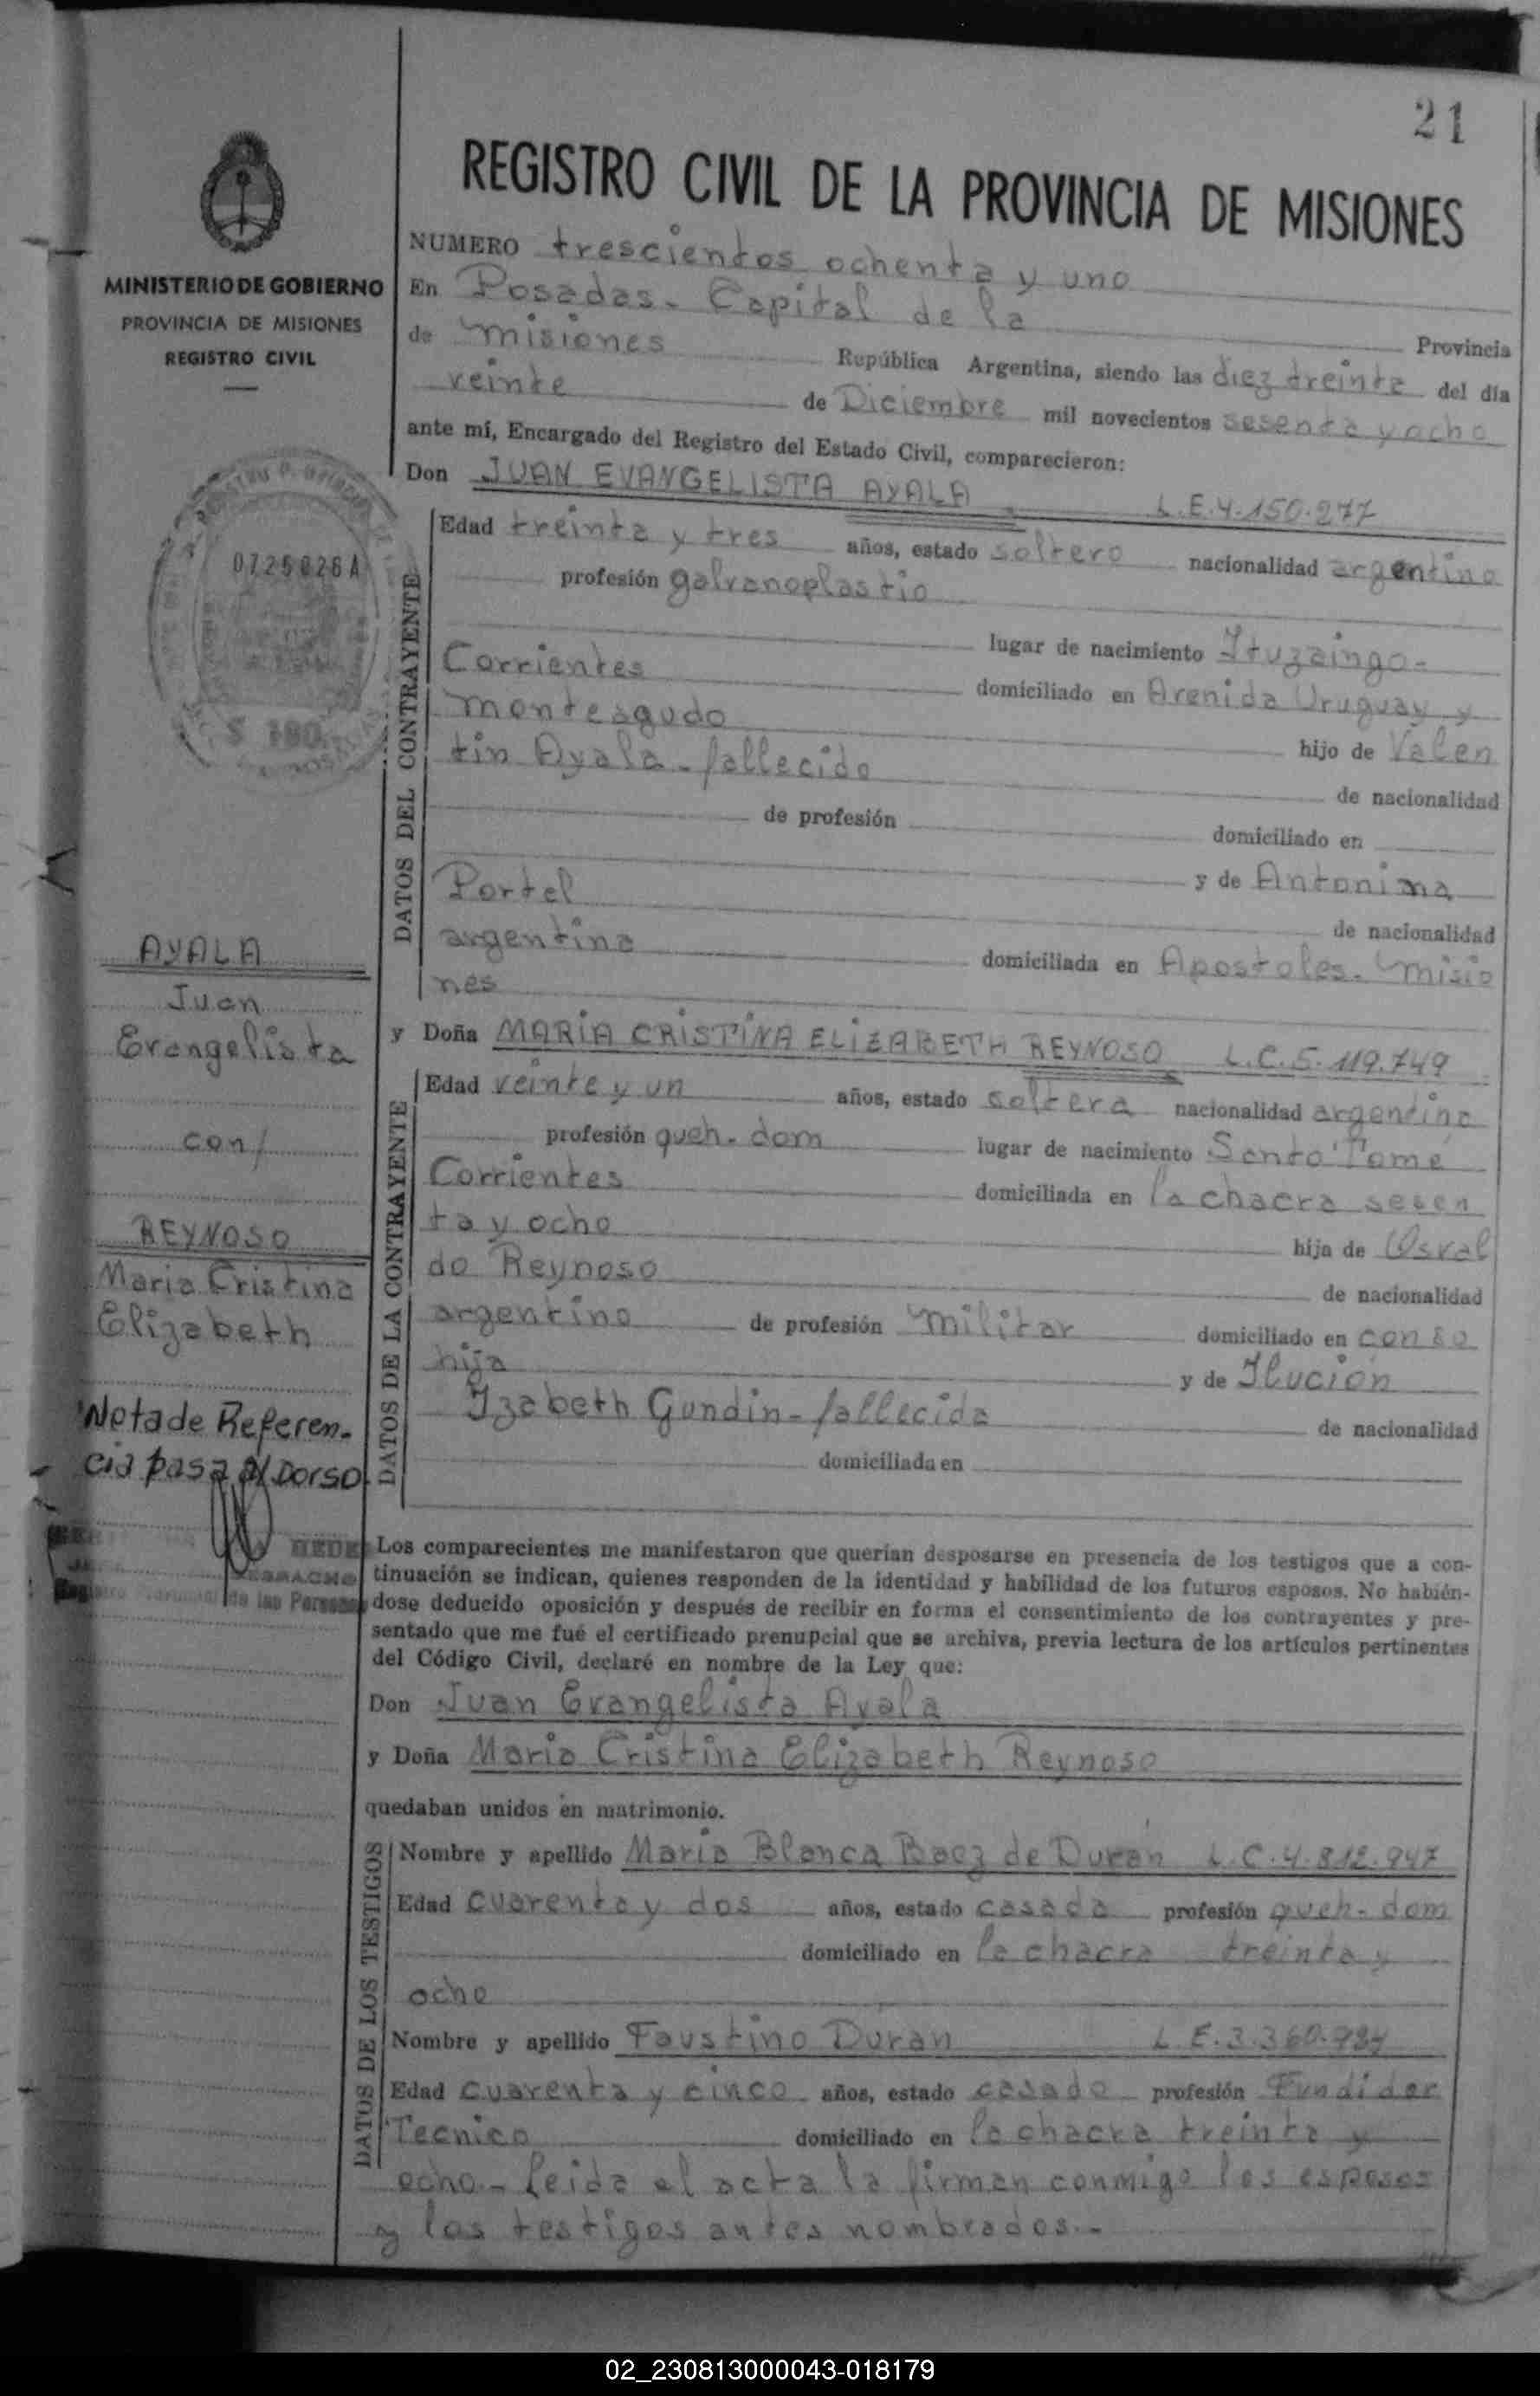 21
REGISTRO CIVIL DE LA PROVINCIA DE MISIONES
MINISTERIO DE GOBIERNO
PROVINCIA DE MISIONES
REGISTRO CIVIL
NUMERO trescientos ochenta y uno
En Posadas - Capital de la
Provincia
de Misiones República Argentina, siendo las diez treinta del día
veinte de Diciembre mil novecientos sesenta y ocho
ante mí, Encargado del Registro del Estado Civil, comparecieron:
Don JUAN EVANGELISTA AYALA L.E.4.150.277
0725026 A
$ 180.-
DATOS DEL CONTRAYENTE
Edad treinta y tres años, estado soltero nacionalidad argentino
profesión galvanoplastio
lugar de nacimiento Ituzaingo-
Corrientes domiciliado en Avenida Uruguay y
Monteagudo hijo de Valen
tin Ayala - fallecido de nacionalidad
de profesión domiciliado en
y de Antonina
Portel de nacionalidad
argentina domiciliada en Apostoles - Misio
nes
AYALA
Juan
Evangelista
con/
REYNOSO
Maria Cristina
Elizabeth
Nota de Referen-
cia pasa al Dorso
y Doña MARIA CRISTINA ELIZABETH REYNOSO L.C.5.119.749
DATOS DE LA CONTRAYENTE
Edad veinte y un años, estado soltera nacionalidad argentina
profesión queh. dom lugar de nacimiento Santo Tomé
Corrientes domiciliada en la chacra sesen
ta y ocho hija de Osval
do Reynoso de nacionalidad
argentino de profesión Militar domiciliado en con su
hija y de Ilución
Izabeth Gundin - fallecida de nacionalidad
domiciliada en
Los comparecientes me manifestaron que querían desposarse en presencia de los testigos que a con-
tinuación se indican, quienes responden de la identidad y habilidad de los futuros esposos. No habién-
dose deducido oposición y después de recibir en forma el consentimiento de los contrayentes y pre-
sentado que me fué el certificado prenupcial que se archiva, previa lectura de los artículos pertinentes
del Código Civil, declaré en nombre de la Ley que:
Don Juan Evangelista Ayala
y Doña Maria Cristina Elizabeth Reynoso
quedaban unidos en matrimonio.
DATOS DE LOS TESTIGOS
Nombre y apellido Maria Blanca Baez de Durán L.C.4.812.947
Edad cuarenta y dos años, estado casada profesión queh. dom
domiciliado en la chacra treinta y
ocho
Nombre y apellido Faustino Duran L.E.3.360.734
Edad cuarenta y cinco años, estado casado profesión Fundidor
Tecnico domiciliado en la chacra treinta y
ocho - Leida el acta la firman conmigo los esposos
y los testigos antes nombrados.-
02_230813000043-018179